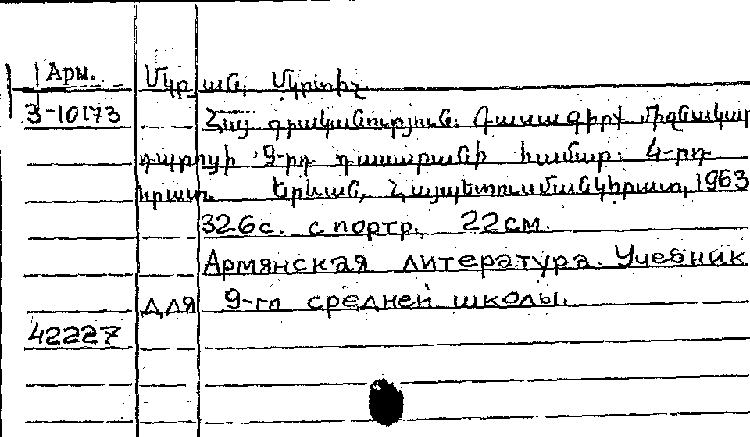 Арм. Մկր_ան, Մկրտիչ
3-10173 Հայ գրականություն. Դասագիրք միջնակար
դպրոցի 9-րդ դասարանի համար. 4-րդ
հրատ. Երևան, Հայպետուսմանկհրատ, 1963
326с. с портр. 22см.
Армянская литература. Учебник
для 9-гл средней школы.
42227